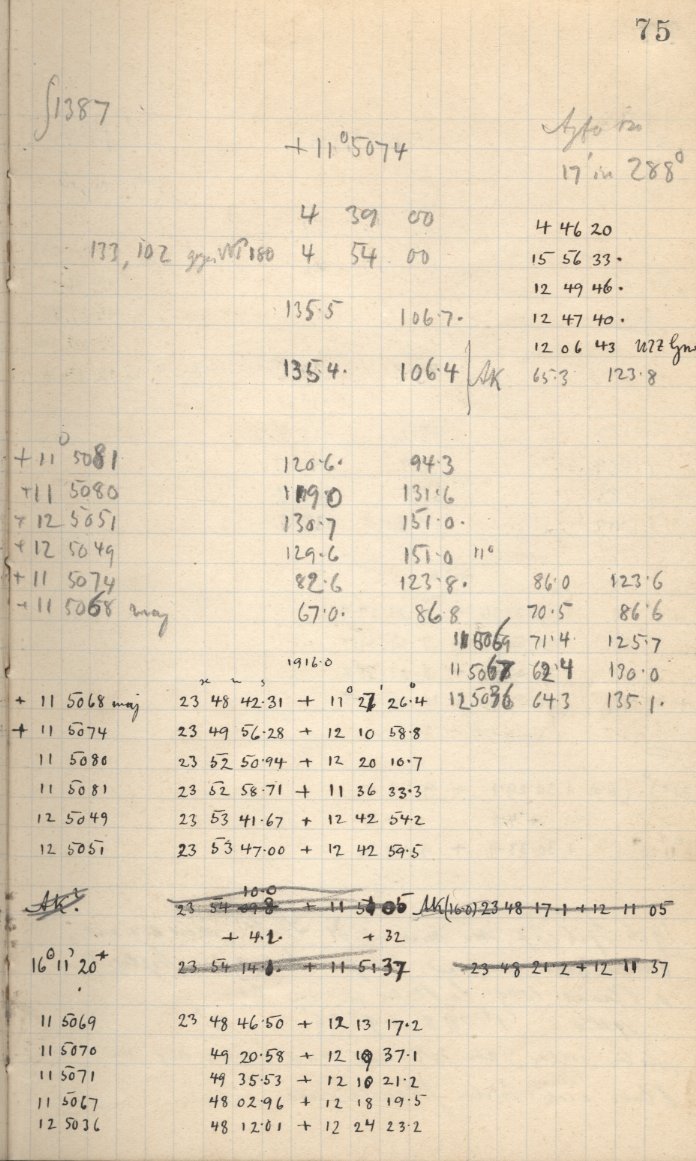 75
1387
+ 11° 5074
17' in 288°
4 39 00
4 46 20
133, 102 gegen NP 180 4 54 00
15 56 33.
12 49 46.
135.5 106.7.
12 47 40.
12 06 43
135.4. 106.4 } AK 65.3 123.8
+ 11° 5081 120.6. 94.3
+11 5080 119.0 131.6
+ 12 5051 130.7 151.0.
+ 12 5049 129.6 151.0 11°
+ 11 5074 82.6 123.8. 86.0 123.6
+ 11 5068 maj 67.0. 86.8 70.5 86.6
11 5069 71.4 125.7
1916.0
11 5067 62.4 130.0
+ 11 5068 maj 23 48 42.31 + 11° 27' 26.4 12 5036 64.3 135.1.
+ 11 5074 23 49 56.28 + 12 10 58.8
11 5080 23 52 50.94 + 12 20 10.7
11 5081 23 52 58.71 + 11 36 33.3
12 5049 23 53 41.67 + 12 42 54.2
12 5051 23 53 47.00 + 12 42 59.5
10.0
AK. 23 54 09.8 + 11 51 05 AK(16.0) 23 48 17.1 + 12 11 05
+ 4.1 + 32
16h 11m 20s 23 54 14.1 + 11 51 37 23 48 21.2 + 12 11 37
11 5069 23 48 46.50 + 12 13 17.2
11 5070 49 20.58 + 12 19 37.1
11 5071 49 35.53 + 12 10 21.2
11 5067 48 02.96 + 12 18 19.5
12 5036 48 12.01 + 12 24 23.2